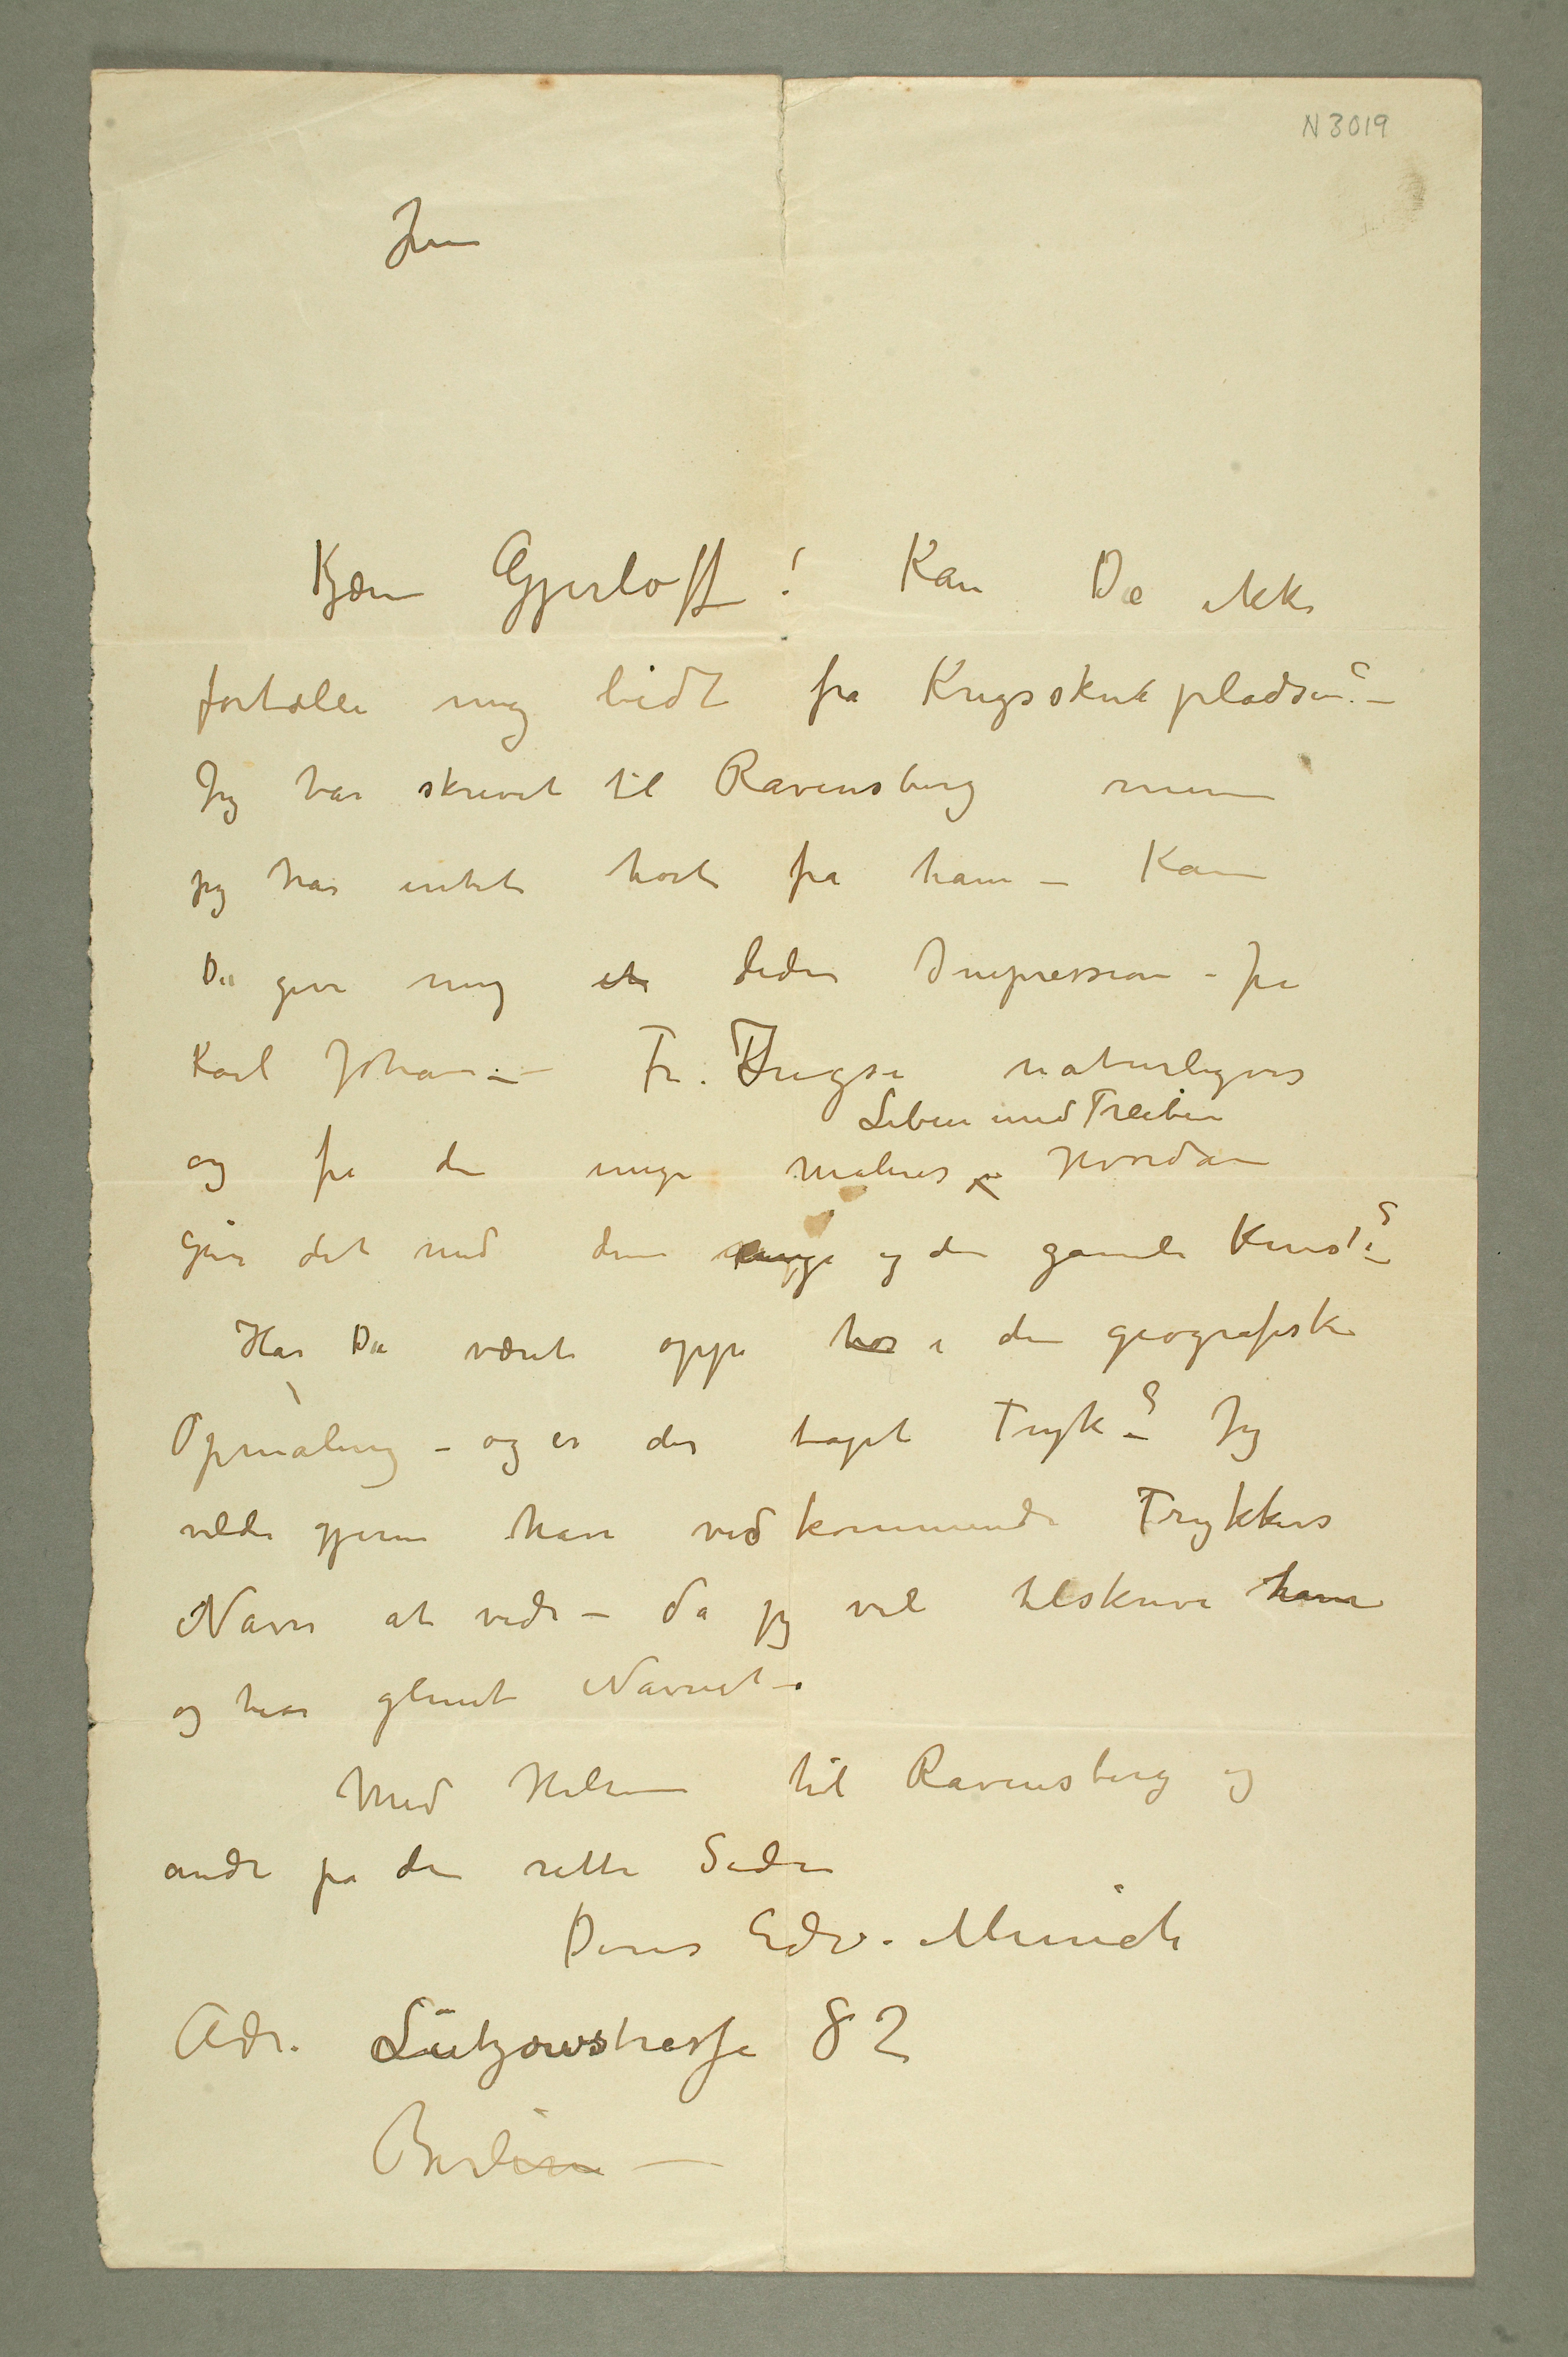 N 3019
Kjære Gjerløff! Kan De ikke
fortælle mig lidt fra Krigsskuepladsen? –
Jeg har skrevet til Ravensberg men
jeg har intet hørt fra ham – Kan
De give mig liden Impression – fra
Karl Johan – Fr. naturligvis
Leben und Treiben
og fra de unge maleres Hvordan
går det med den unge og den gamle Kunst? –
Har De været oppe hos i den geografiske
Opmåling – og er der taget Tryk? – Jeg
vilde gjerne have vedkommende Trykkers
Navn at vide – da jeg vil tilskrive ham
og har glemt Navnet –
Med Hilsen til Ravensberg og
andre på den rette Siden
Deres Edv. Munch
Adr. Lützowstrasse 82
Berlin –